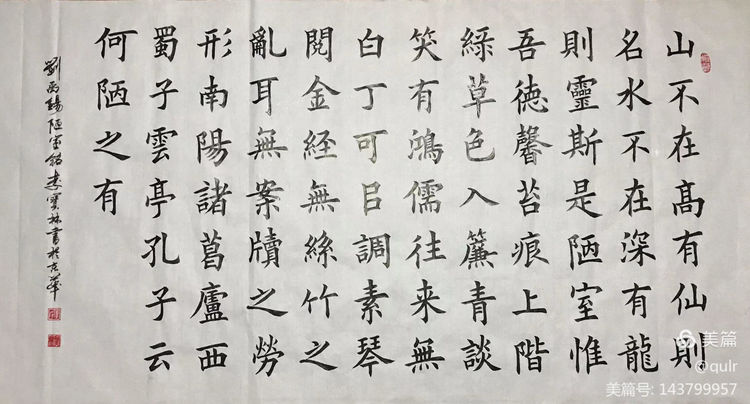 山不在高有仙則
名水不在深有龍
則靈斯是陋室惟
吾德馨苔痕上階
綠草色入簾青談
笑有鴻儒往来無
白丁可㠯調素琴
閱金経無絲竹之
亂耳無案牘之勞
形南陽諸葛廬西
蜀子雲亭孔子云
何陋之有
劉禹錫陋室銘寶林書於京華
美篇
@qulr
美篇号: 143799957